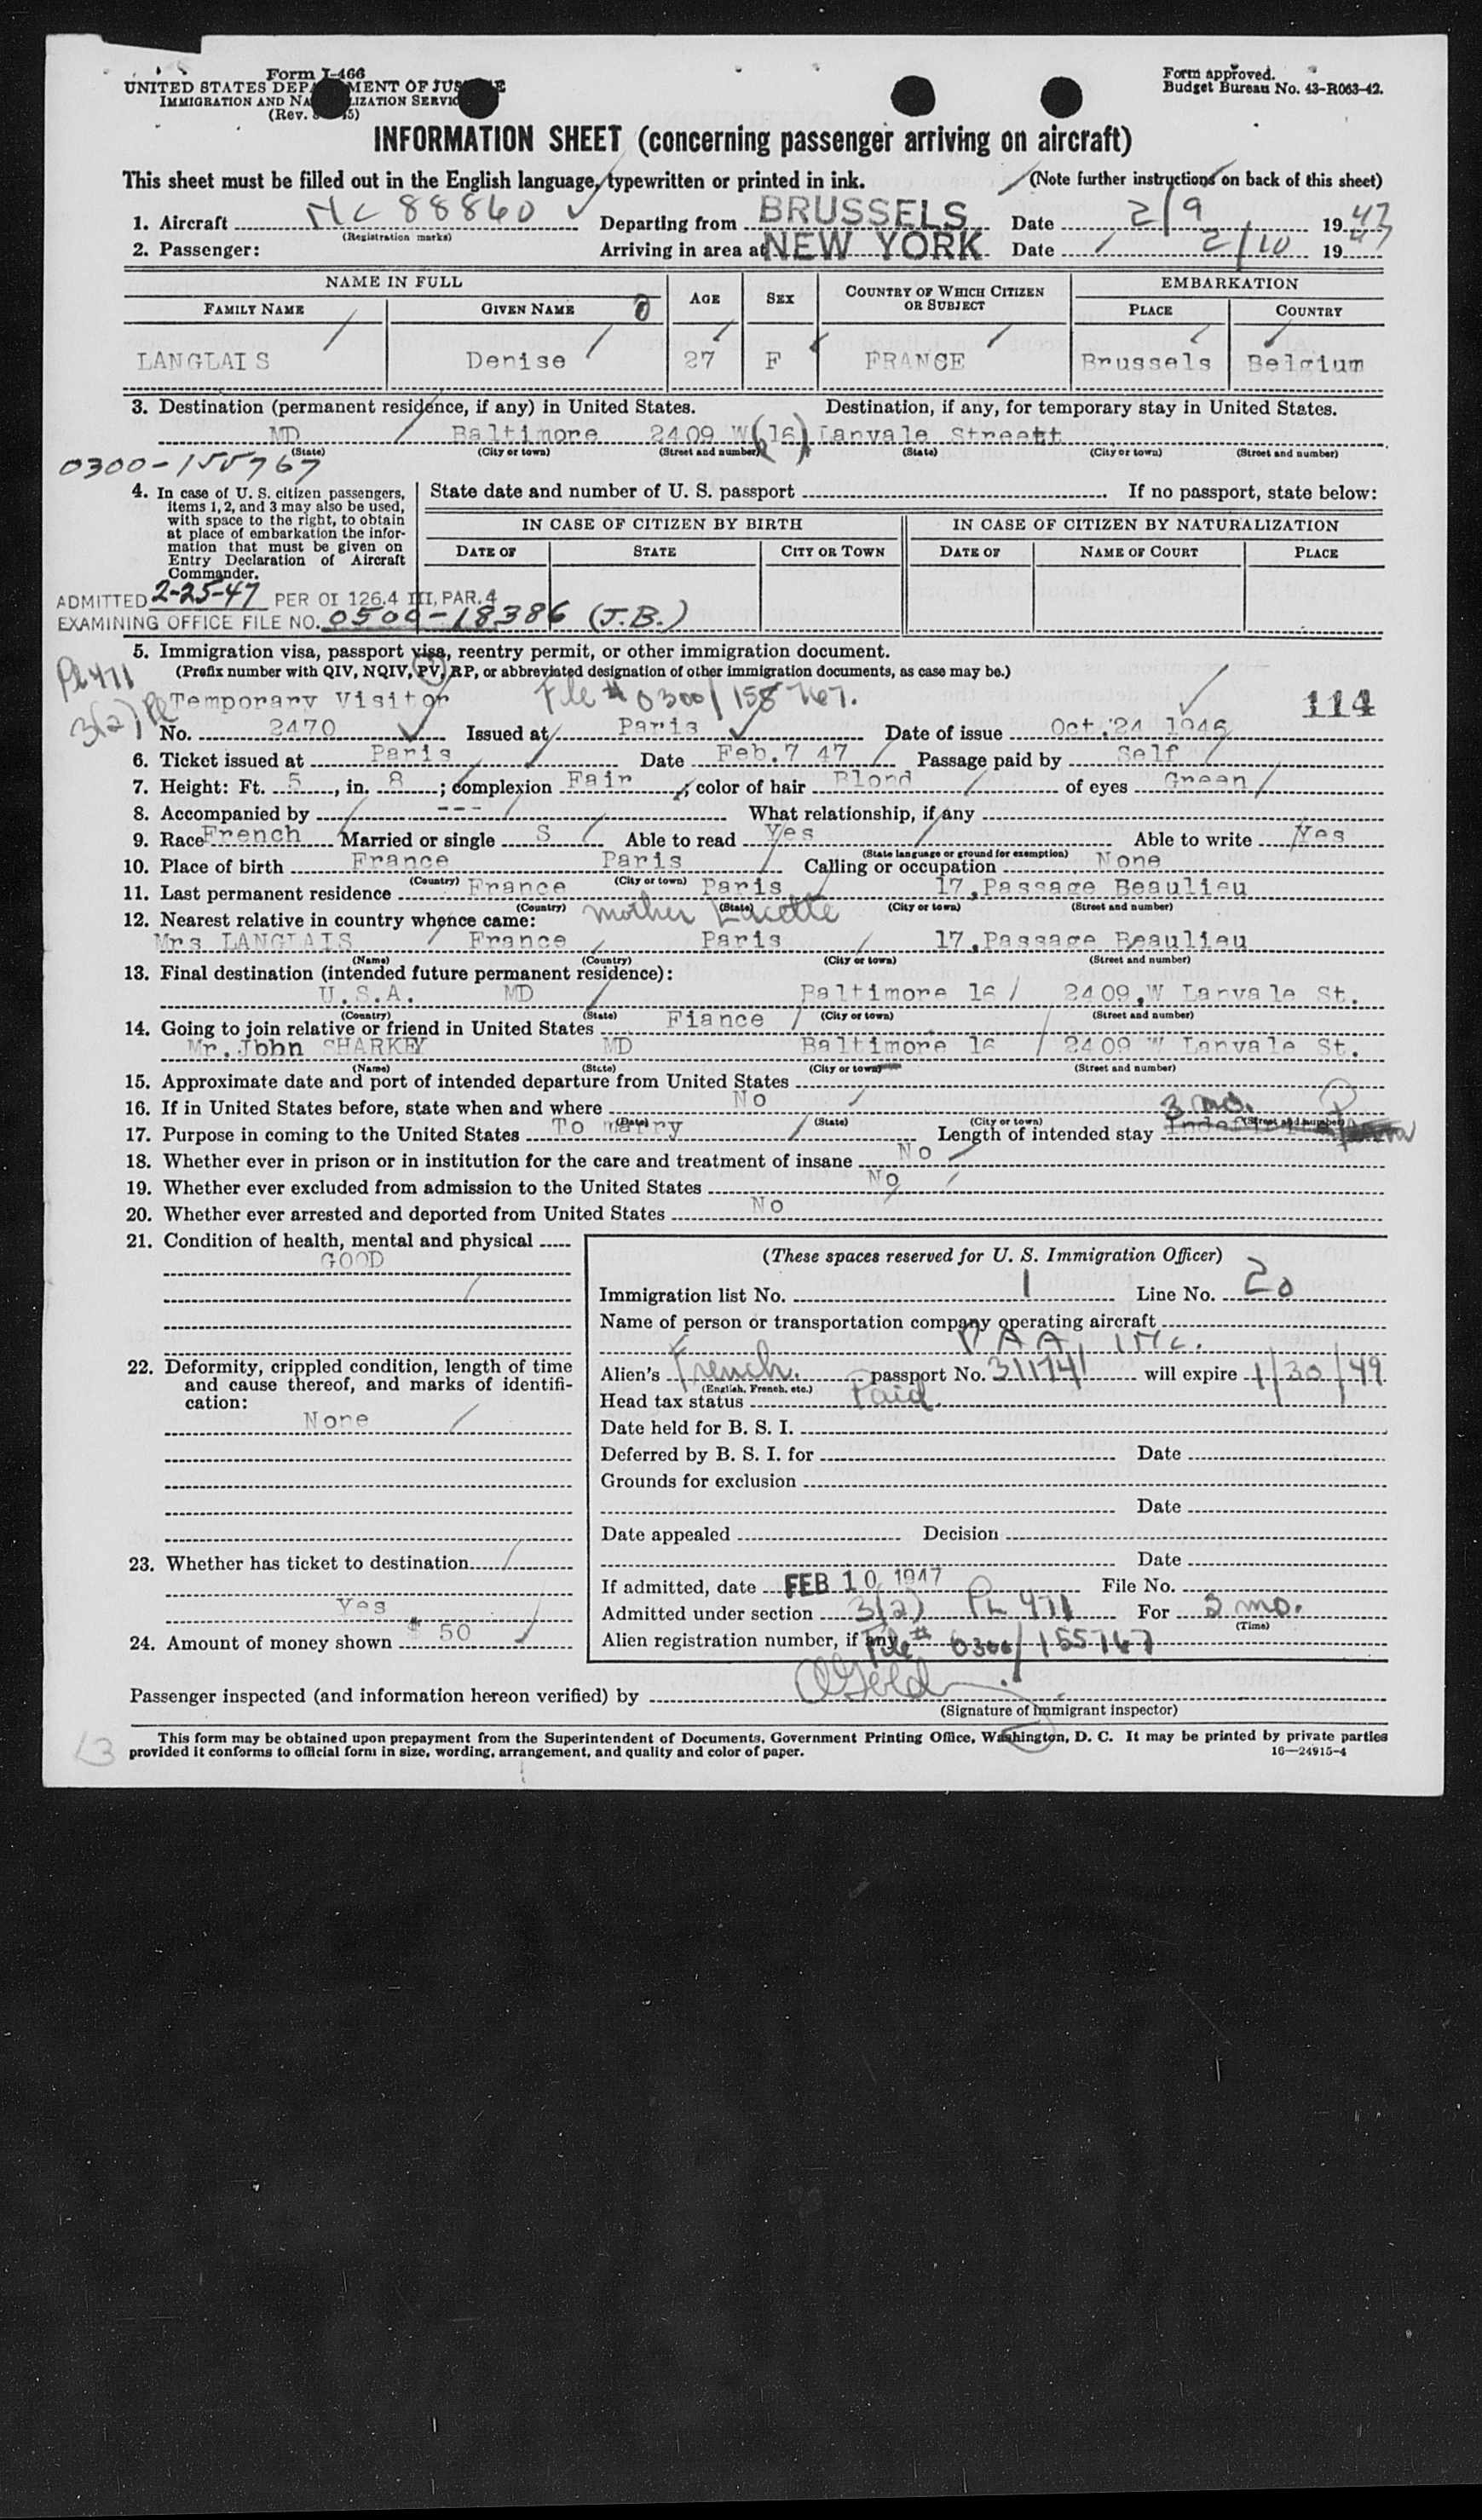 Form I-466
UNITED STATES DEPARTMENT OF JUSTICE
IMMIGRATION AND NATURALIZATION SERVICE
(Rev.
Form approved.
Budget Bureau No. 43-R063-42.
INFORMATION SHEET (concerning passenger arriving on aircraft)
This sheet must be filled out in the English language, typewritten or printed in ink. (Note further instructions on back of this sheet)
1. Aircraft NC 88860 Departing from BRUSSELS Date 2/9 1947
(Registration marks)
2. Passenger: Arriving in area at NEW YORK Date 2/10 1947
NAME IN FULL AGE SEX COUNTRY OF WHICH CITIZEN OR SUBJECT EMBARKATION
FAMILY NAME GIVEN NAME PLACE COUNTRY
LANGLAIS Denise 27 F FRANCE Brussels Belgium
3. Destination (permanent residence, if any) in United States. Destination, if any, for temporary stay in United States.
MD Baltimore 2409 W (16) Lanvale Streett
(State) (City or town) (Street and number) (State) (City or town) (Street and number)
0300-155767
4. In case of U. S. citizen passengers, items 1, 2, and 3 may also be used, with space to the right, to obtain at place of embarkation the information that must be given on Entry Declaration of Aircraft Commander.
State date and number of U. S. passport If no passport, state below:
IN CASE OF CITIZEN BY BIRTH IN CASE OF CITIZEN BY NATURALIZATION
DATE OF STATE CITY OR TOWN DATE OF NAME OF COURT PLACE
ADMITTED 2-25-47 PER OI 126.4 III, PAR. 4
EXAMINING OFFICE FILE NO. 0500-18386 (J.B.)
5. Immigration visa, passport visa, reentry permit, or other immigration document.
(Prefix number with QIV, NQIV, PV, RP, or abbreviated designation of other immigration documents, as case may be.)
PL 471
3(2) PL Temporary Visitor File # 0300/155767. 114
No. 2470 Issued at Paris Date of issue Oct. 24 1946
6. Ticket issued at Paris Date Feb. 7 47 Passage paid by Self
7. Height: Ft. 5, in. 8; complexion Fair; color of hair Blond of eyes Green
8. Accompanied by --- What relationship, if any
9. Race French Married or single S Able to read Yes Able to write Yes
(State language or ground for exemption)
10. Place of birth France Paris Calling or occupation None
(Country) (City or town)
11. Last permanent residence France Paris 17, Passage Beaulieu
(Country) (State) (City or town) (Street and number)
12. Nearest relative in country whence came: mother Lucette
Mrs LANGLAIS France Paris 17, Passage Beaulieu
(Name) (Country) (City or town) (Street and number)
13. Final destination (intended future permanent residence):
U.S.A. MD Baltimore 16 2409, W Lanvale St.
(Country) (State) (City or town) (Street and number)
14. Going to join relative or friend in United States Fiance
Mr. John SHARKEY MD Baltimore 16 2409 W Lanvale St.
(Name) (State) (City or town) (Street and number)
15. Approximate date and port of intended departure from United States
16. If in United States before, state when and where No
(Date) (State) (City or town) (Street and number)
17. Purpose in coming to the United States To marry Length of intended stay 3 mo.
18. Whether ever in prison or in institution for the care and treatment of insane No
19. Whether ever excluded from admission to the United States No
20. Whether ever arrested and deported from United States No
21. Condition of health, mental and physical
GOOD
22. Deformity, crippled condition, length of time and cause thereof, and marks of identification:
None
23. Whether has ticket to destination
Yes
24. Amount of money shown $ 50
(These spaces reserved for U. S. Immigration Officer)
Immigration list No. 1 Line No. 20
Name of person or transportation company operating aircraft
P A A INC.
Alien's French passport No. 311741 will expire 1/30/49
(English, French, etc.)
Head tax status Paid.
Date held for B. S. I.
Deferred by B. S. I. for Date
Grounds for exclusion
Date
Date appealed Decision
Date
If admitted, date FEB 10 1947 File No.
Admitted under section 3(2) PL 471 For 3 mo.
(Time)
Alien registration number, if any File # 0300/155767
Passenger inspected (and information hereon verified) by
(Signature of immigrant inspector)
This form may be obtained upon prepayment from the Superintendent of Documents, Government Printing Office, Washington, D. C. It may be printed by private parties
provided it conforms to official form in size, wording, arrangement, and quality and color of paper. 16—24915-4
13